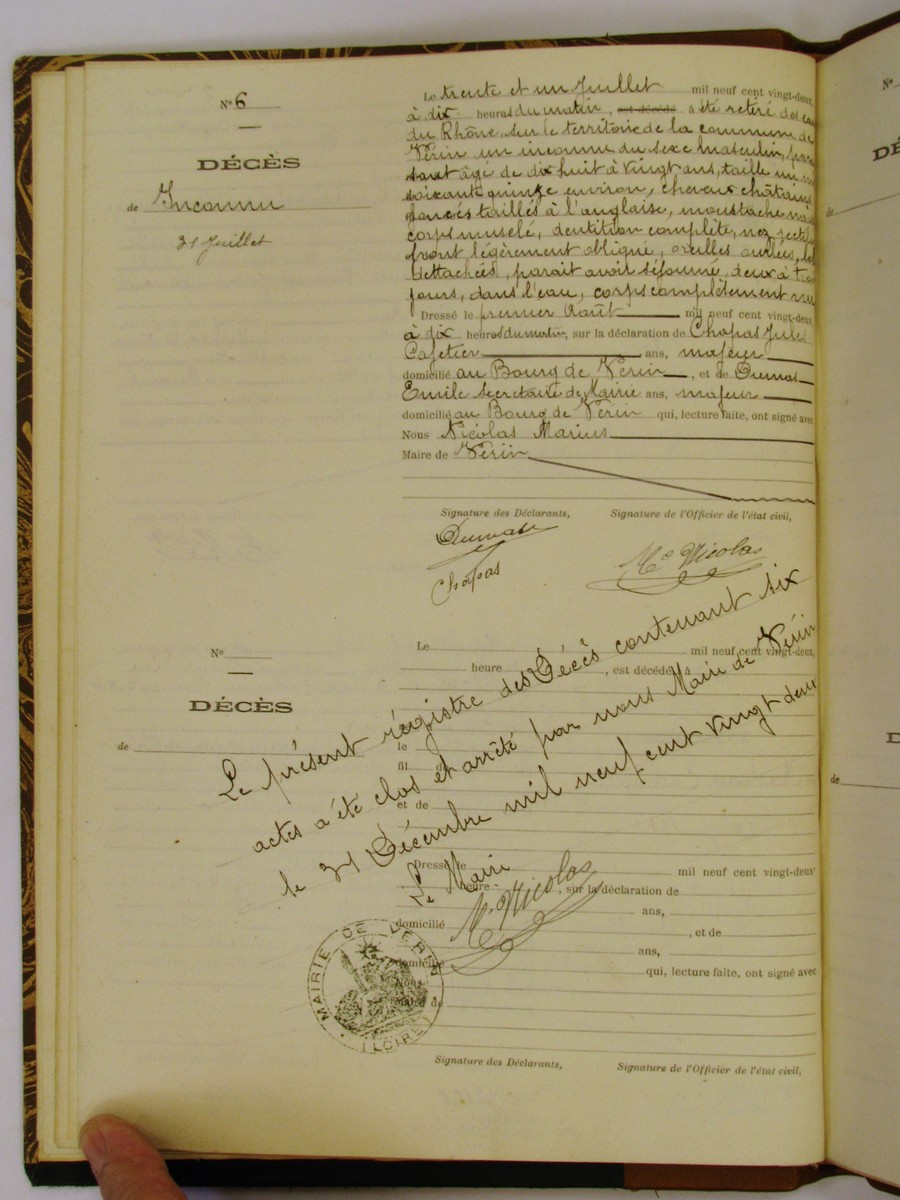 N° 6
DÉCÈS
de Inconnu
31 Juillet
Le trente et un Juillet mil neuf cent vingt-deux,
à dix heures du matin, est décédé a été retiré des eau
du Rhône, sur le territoire de la commune de
Vérin un inconnu du sexe masculin, parai
ssant âgé de dix huit à vingt ans, taille un m
soixante quinze environ, cheveux châtains
foncés taillés à l'anglaise, moustache
corps musclé, dentition complète, nez
front légèrement obliqué, oreilles ourlées,
dettachées, parait avoir séjourné, deux à tro
jours, dans l'eau, corps complètement nu
Dressé le premier Août mil neuf cent vingt-deux,
à dix heures du matin, sur la déclaration de Chapas Jules
Cafetier ans, majeur
domicilié au Bourg de Vérin, et de Dumas
Emile secretaire de Mairie ans, majeur
domicilié au Bourg de Vérin qui, lecture faite, ont signé avec
Nous Nicolas Marius
Maire de Vérin
Signature des Déclarants, Signature de l'Officier de l'état civil,
Dumas
Chapas
Ms Nicolas
N°
DÉCÈS
de
Le mil neuf cent vingt-deux,
heure , est décédé à
le
fil de
et de
Le présent régistre des Décès contenant six
actes a été clos et arrêté par nous Maire de Vérin
le 31 Décembre mil neuf cent vingt deux
Le Maire
Ms Nicolas
Dressé le mil neuf cent vingt-deux
heure , sur la déclaration de
domicilié ans,
, et de
domicilié ans,
qui, lecture faite, ont signé avec
Nous
Maire de
MAIRIE DE VERIN
(LOIRE)
Signature des Déclarants, Signature de l'Officier de l'état civil,
N°
DÉ
de
D
de